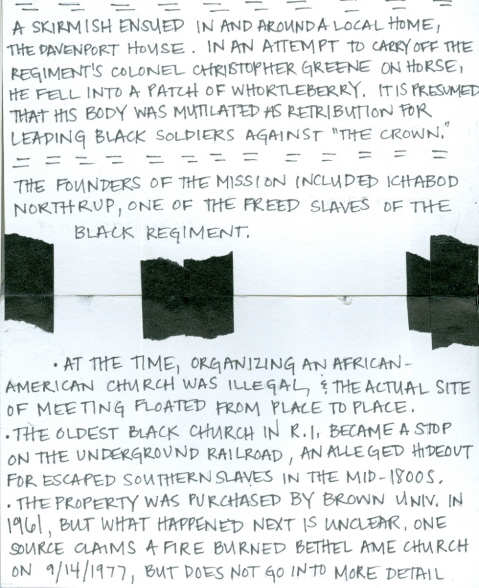 A SKIRMISH ENSUED IN AND AROUND A LOCAL HOME,
THE DAVENPORT HOUSE. IN AN ATTEMPT TO CARRY OFF THE
REGIMENT'S COLONEL CHRISTOPHER GREENE ON HORSE,
HE FELL INTO A PATCH OF WHORTLEBERRY. IT IS PRESUMED
THAT HIS BODY WAS MUTILATED AS RETRIBUTION FOR
LEADING BLACK SOLDIERS AGAINST "THE CROWN."
THE FOUNDERS OF THE MISSION INCLUDED ICHABOD
NORTHRUP, ONE OF THE FREED SLAVES OF THE
BLACK REGIMENT.
• AT THE TIME, ORGANIZING AN AFRICAN-
AMERICAN CHURCH WAS ILLEGAL, & THE ACTUAL SITE
OF MEETING FLOATED FROM PLACE TO PLACE.
• THE OLDEST BLACK CHURCH IN R.I. BECAME A STOP
ON THE UNDERGROUND RAILROAD, AN ALLEGED HIDEOUT
FOR ESCAPED SOUTHERN SLAVES IN THE MID-1800S.
• THE PROPERTY WAS PURCHASED BY BROWN UNIV. IN
1961, BUT WHAT HAPPENED NEXT IS UNCLEAR. ONE
SOURCE CLAIMS A FIRE BURNED BETHEL AME CHURCH
ON 9/14/1977, BUT DOES NOT GO INTO MORE DETAIL